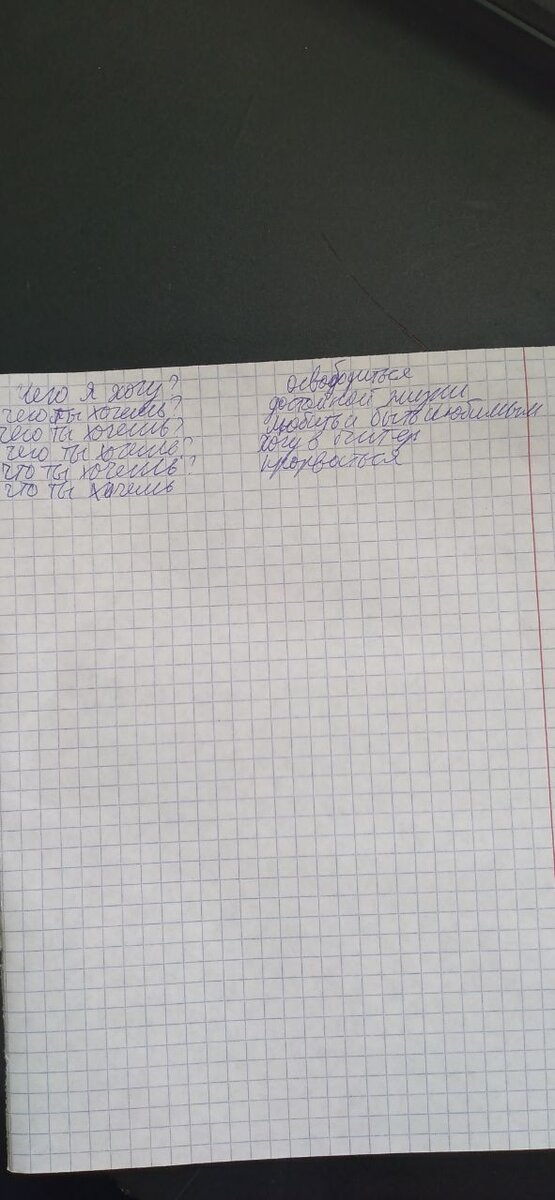 Чего я хочу? освободиться
чего ты хочешь? достойной жизни
чего ты хочешь? любить и быть любимым
чего ты хочешь? хочу в Питер
что ты хочешь? прорваться
что ты хочешь